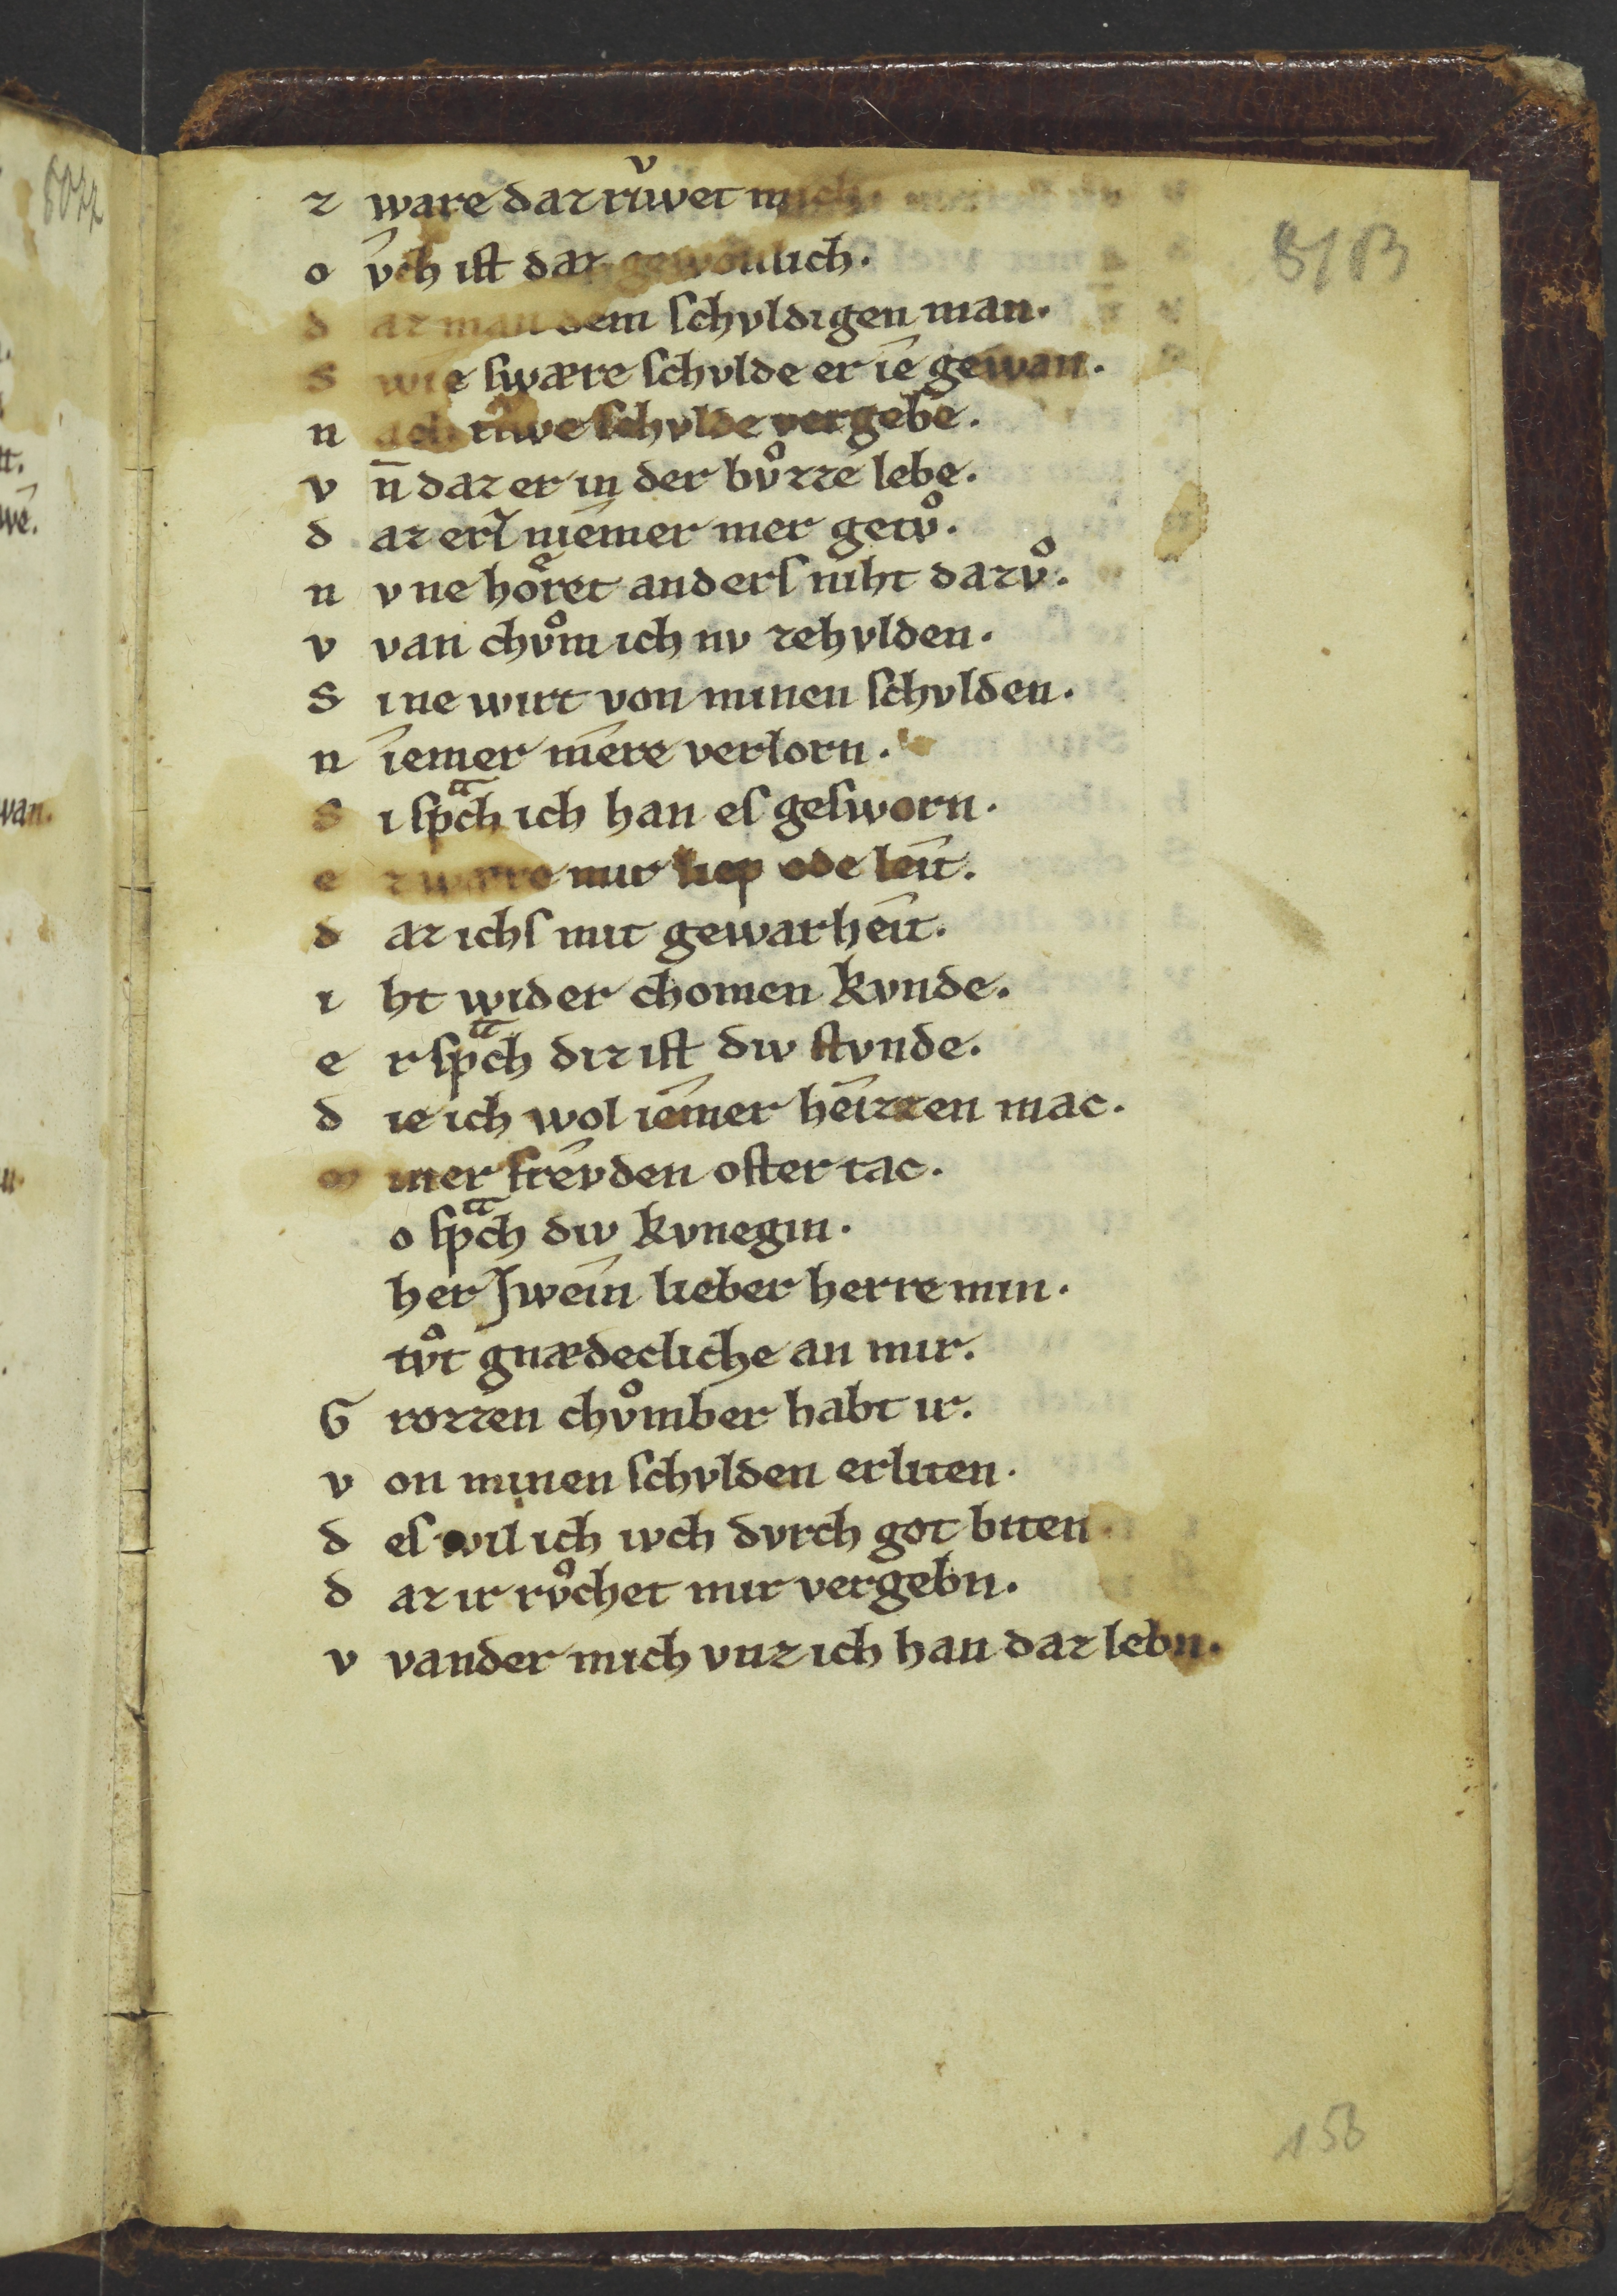 z ware daz ruͮwet mich
o vch ist daz gewonlich.
d az man dem schvldigen man.
S wie swære schvlde er ie gewan.
n ach ruwe schvlde vergebe.
v n̄ daz er in der bvͦzze lebe.
d az erſ niemer mer getvͦ.
n v ne hoͤret anderſ niht dazvͦ.
v van chvͦm ich nv zehvlden.
S ine wirt von minen schvlden.
n iemer mere verlorn.
S i spͣch ich han eſ gesworn.
e z wære mir liep ode leit.
d az ichſ mit gewarheit.
i ht wider chomen kvnde.
e r spͣch diz ist div stvnde.
d ie ich wol iemer heizzen mac.
m iner frevden oster tac.
o spͣch div kvnegin.
her Jwein lieber herre min.
tvͦt gnædecliche an mir.
G rozzen chvͦmber habt ir.
v on minen schvlden erliten.
d eſ wil ich ivch dvrch got biten.
d az ir rvͦchet mir vergebn.
v vander mich vnz ich han daz lebn.
158